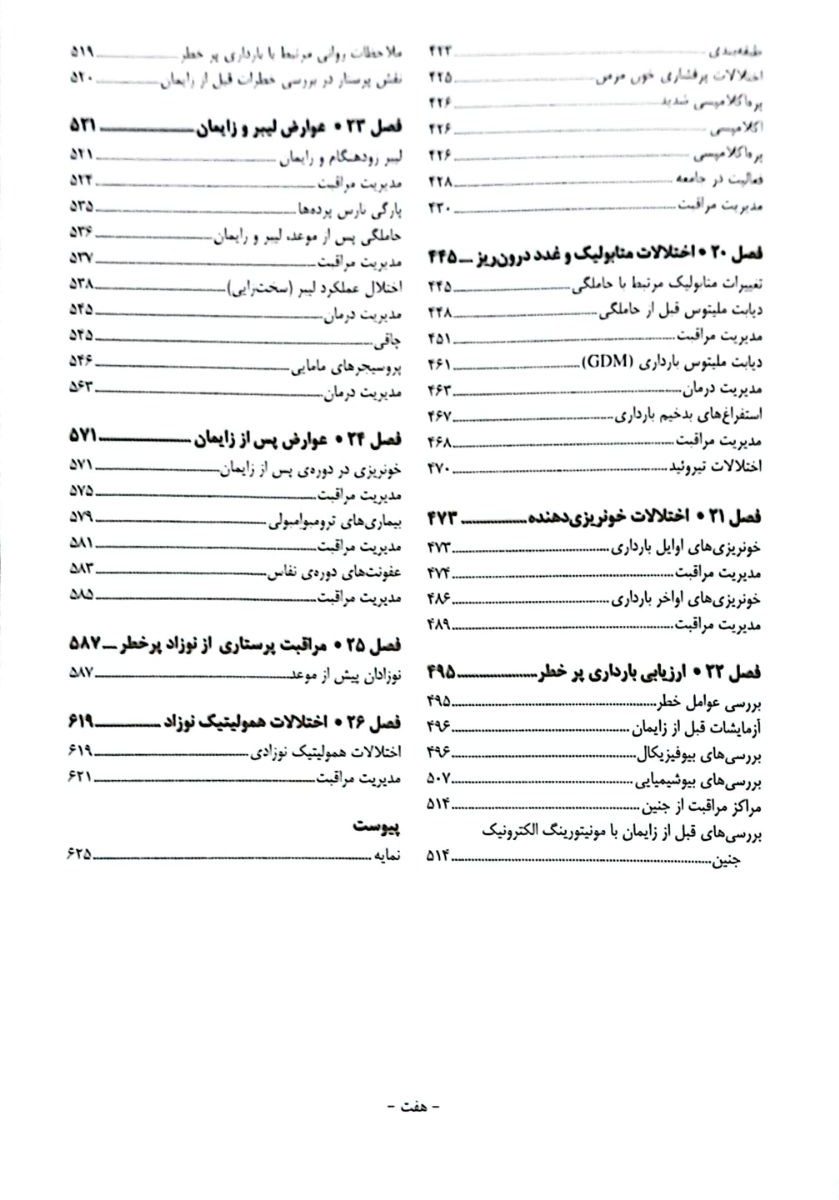 طبقه‌بندی ۴۲۳
اختلالات پرفشاری خون مزمن ۴۲۵
پره‌اکلامپسی شدید ۴۲۶
اکلامپسی ۴۲۶
پره‌اکلامپسی ۴۲۶
فعالیت در جامعه ۴۲۸
مدیریت مراقبت ۴۳۰
فصل ۲۰ • اختلالات متابولیک و غدد درون‌ریز ۴۴۵
تغییرات متابولیک مرتبط با حاملگی ۴۴۵
دیابت ملیتوس قبل از حاملگی ۴۴۸
مدیریت مراقبت ۴۵۱
دیابت ملیتوس بارداری (GDM) ۴۶۱
مدیریت درمان ۴۶۳
استفراغ‌های بدخیم بارداری ۴۶۷
مدیریت مراقبت ۴۶۸
اختلالات تیروئید ۴۷۰
فصل ۲۱ • اختلالات خونریزی‌دهنده ۴۷۳
خونریزی‌های اوایل بارداری ۴۷۳
مدیریت مراقبت ۴۷۴
خونریزی‌های اواخر بارداری ۴۸۶
مدیریت مراقبت ۴۸۹
فصل ۲۲ • ارزیابی بارداری پر خطر ۴۹۵
بررسی عوامل خطر ۴۹۵
آزمایشات قبل از زایمان ۴۹۶
بررسی‌های بیوفیزیکال ۴۹۶
بررسی‌های بیوشیمیایی ۵۰۷
مراکز مراقبت از جنین ۵۱۴
بررسی‌های قبل از زایمان با مونیتورینگ الکترونیک
جنین ۵۱۴
ملاحظات روانی مرتبط با بارداری پر خطر ۵۱۹
نقش پرستار در بررسی خطرات قبل از زایمان ۵۲۰
فصل ۲۳ • عوارض لیبر و زایمان ۵۲۱
لیبر زودهنگام و زایمان ۵۲۱
مدیریت مراقبت ۵۲۴
پارگی نارس پرده‌ها ۵۳۵
حاملگی پس از موعد، لیبر و زایمان ۵۳۶
مدیریت مراقبت ۵۳۷
اختلال عملکرد لیبر (سخت‌زایی) ۵۳۸
مدیریت درمان ۵۴۵
چاقی ۵۴۵
پروسیجرهای مامایی ۵۴۶
مدیریت درمان ۵۶۳
فصل ۲۴ • عوارض پس از زایمان ۵۷۱
خونریزی در دوره‌ی پس از زایمان ۵۷۱
مدیریت مراقبت ۵۷۵
بیماری‌های ترومبوآمبولی ۵۷۹
مدیریت مراقبت ۵۸۱
عفونت‌های دوره‌ی نفاس ۵۸۳
مدیریت مراقبت ۵۸۵
فصل ۲۵ • مراقبت پرستاری از نوزاد پرخطر ۵۸۷
نوزادان پیش از موعد ۵۸۷
فصل ۲۶ • اختلالات همولیتیک نوزاد ۶۱۹
اختلالات همولیتیک نوزادی ۶۱۹
مدیریت مراقبت ۶۲۱
پیوست
نمایه ۶۲۵
- هفت -